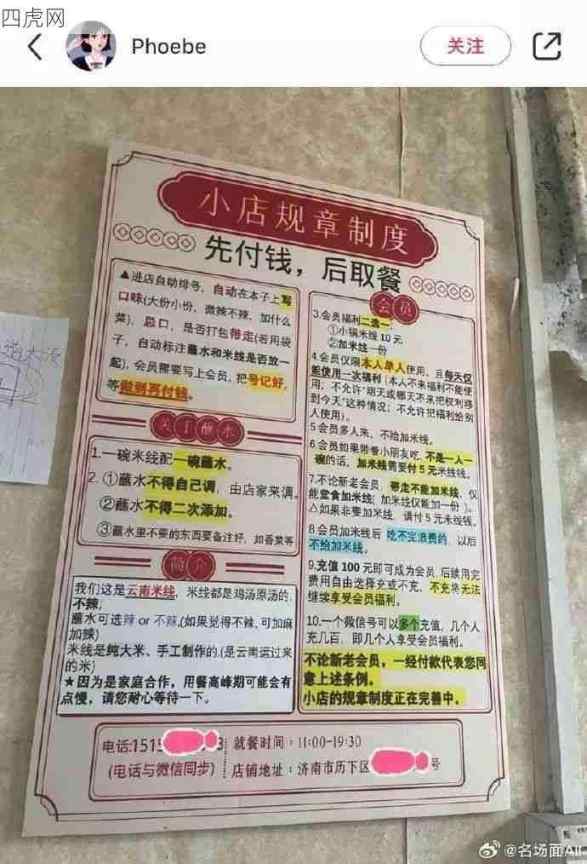 四虎网
Phoebe
关注
小店规章制度
先付钱，后取餐
▲进店自动排号，自动在本子上写
口味(大份小份，微辣不辣，加什么
菜)，忌口，是否打包带走(若用袋
子，自动标注蘸水和米线是否放一
起)，会员需要写上会员，把号记好，
等做到再付钱。
关于蘸水
1.一碗米线配一碗蘸水。
2. ①蘸水不得自己调，由店家来调。
②蘸水不得二次添加。
③蘸水里不要的东西要备注好，如香菜等
简介
我们这是云南米线，米线都是鸡汤原汤的，
不辣，
蘸水可选辣or不辣,(如果觉得不辣,可加麻
加辣)
米线是纯大米、手工制作的,(是云南运过来
的米)
★因为是家庭合作，用餐高峰期可能会有
点慢，请您耐心等待一下。
会员
3.会员福利二选一:
①小锅米线10元
②加米线一份
4.会员仅限本人单人使用，且每天仅
能使用一次福利(本人不来福利不能使
用；不允许"明天或哪天不来把权利移
到今天"这种情况；不允许把福利给别
人使用)。
5.会员多人来，不给加米线。
6.会员如果带着小朋友吃，不是一人一
碗的话，加米线需要付5元米线钱。
7.不论新老会员，带走不能加米线，仅
能堂食加米线(加米线仅能加一份)。
△如果非要加米线，请付5元米线钱。
8.会员加米线后 吃不完浪费的，以后
不给加米线。
9.充值100元即可成为会员,后续用完
费用自由选择充或不充，不充将无法
继续享受会员福利。
10.一个微信号可以多个充值，几个人
充几百，即几个人享受会员福利。
不论新老会员，一经付款代表您同
意上述条例。
小店的规章制度正在完善中。
电话:151
(电话与微信同步)
就餐时间：11:00-19:30
店铺地址：济南市历下区
号
@名场面All